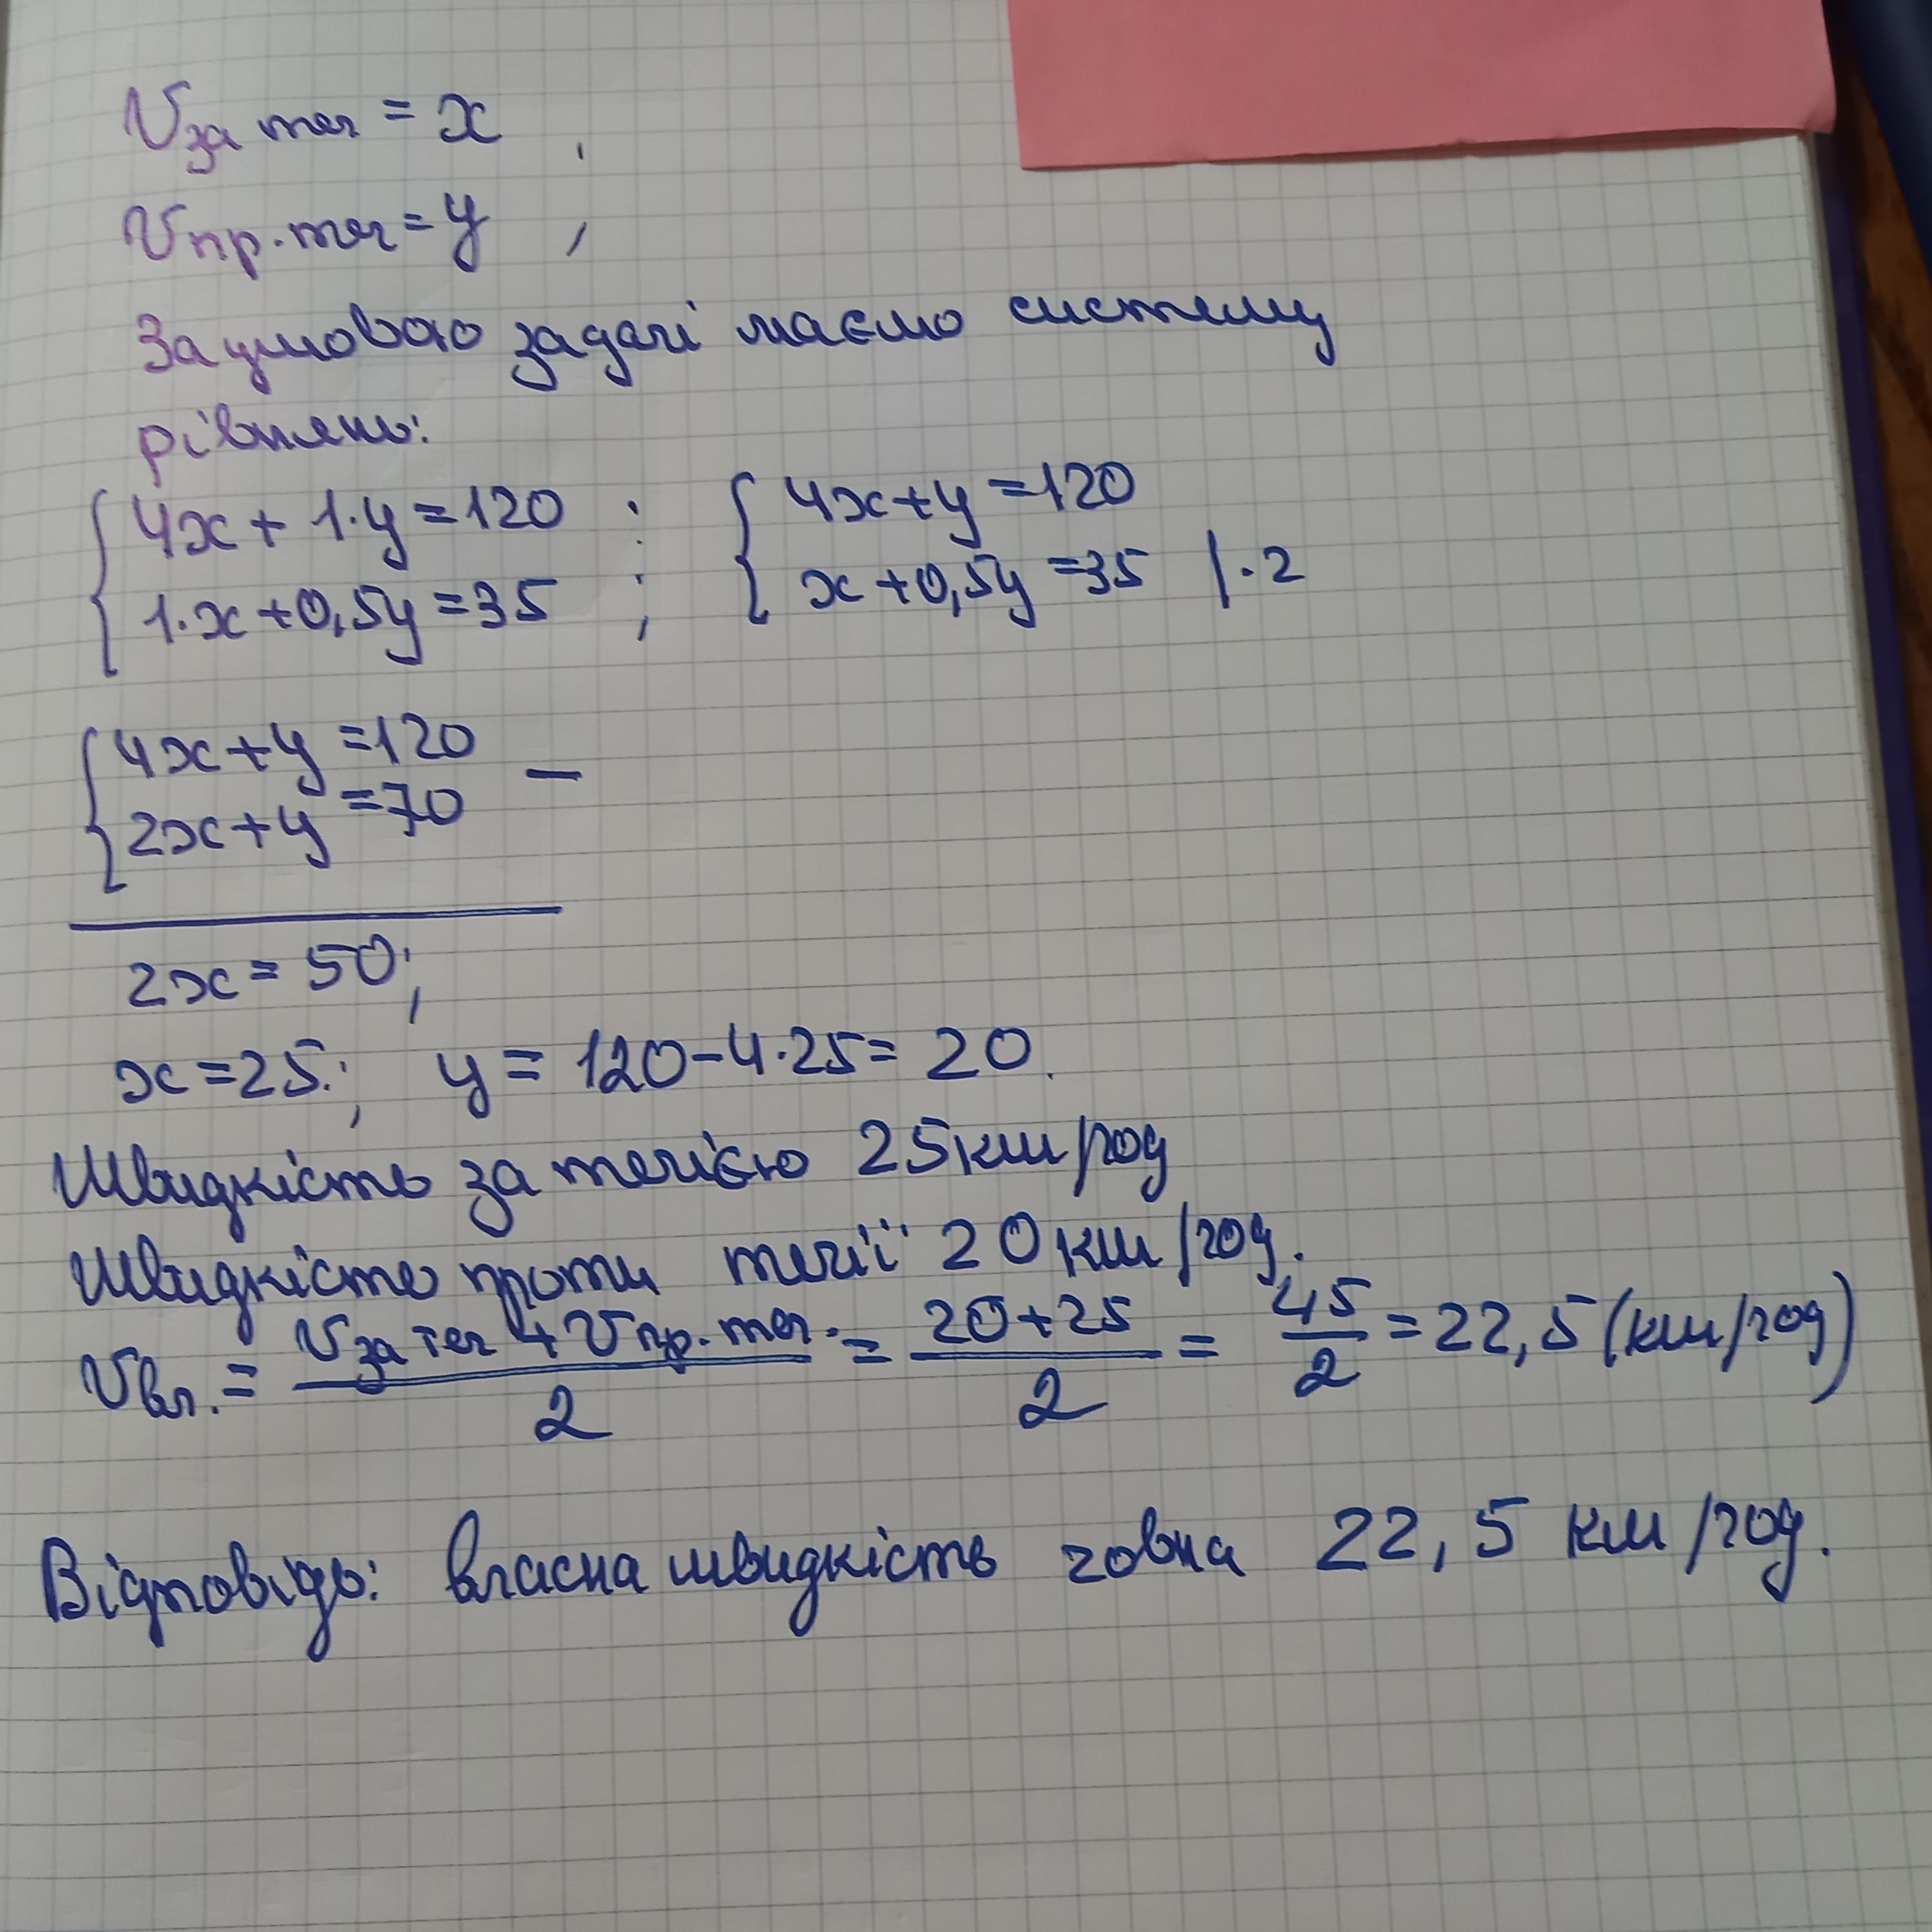 Vза теч = x ,
Vпр.теч = y ,
За умовою задачі маємо систему
рівнянь:
{ 4x + 1·y = 120 ; { 4x + y = 120
{ 1·x + 0,5y = 35 ; { x + 0,5y = 35 | · 2
{ 4x + y = 120 −
{ 2x + y = 70
2x = 50;
x = 25.; y = 120 − 4·25 = 20.
Швидкість за течією 25 км/год
Швидкість проти течії 20 км/год.
Vвл. = (Vза теч + Vпр.теч.)/2 = (20 + 25)/2 = 45/2 = 22,5 (км/год)
Відповідь: власна швидкість човна 22,5 км/год.